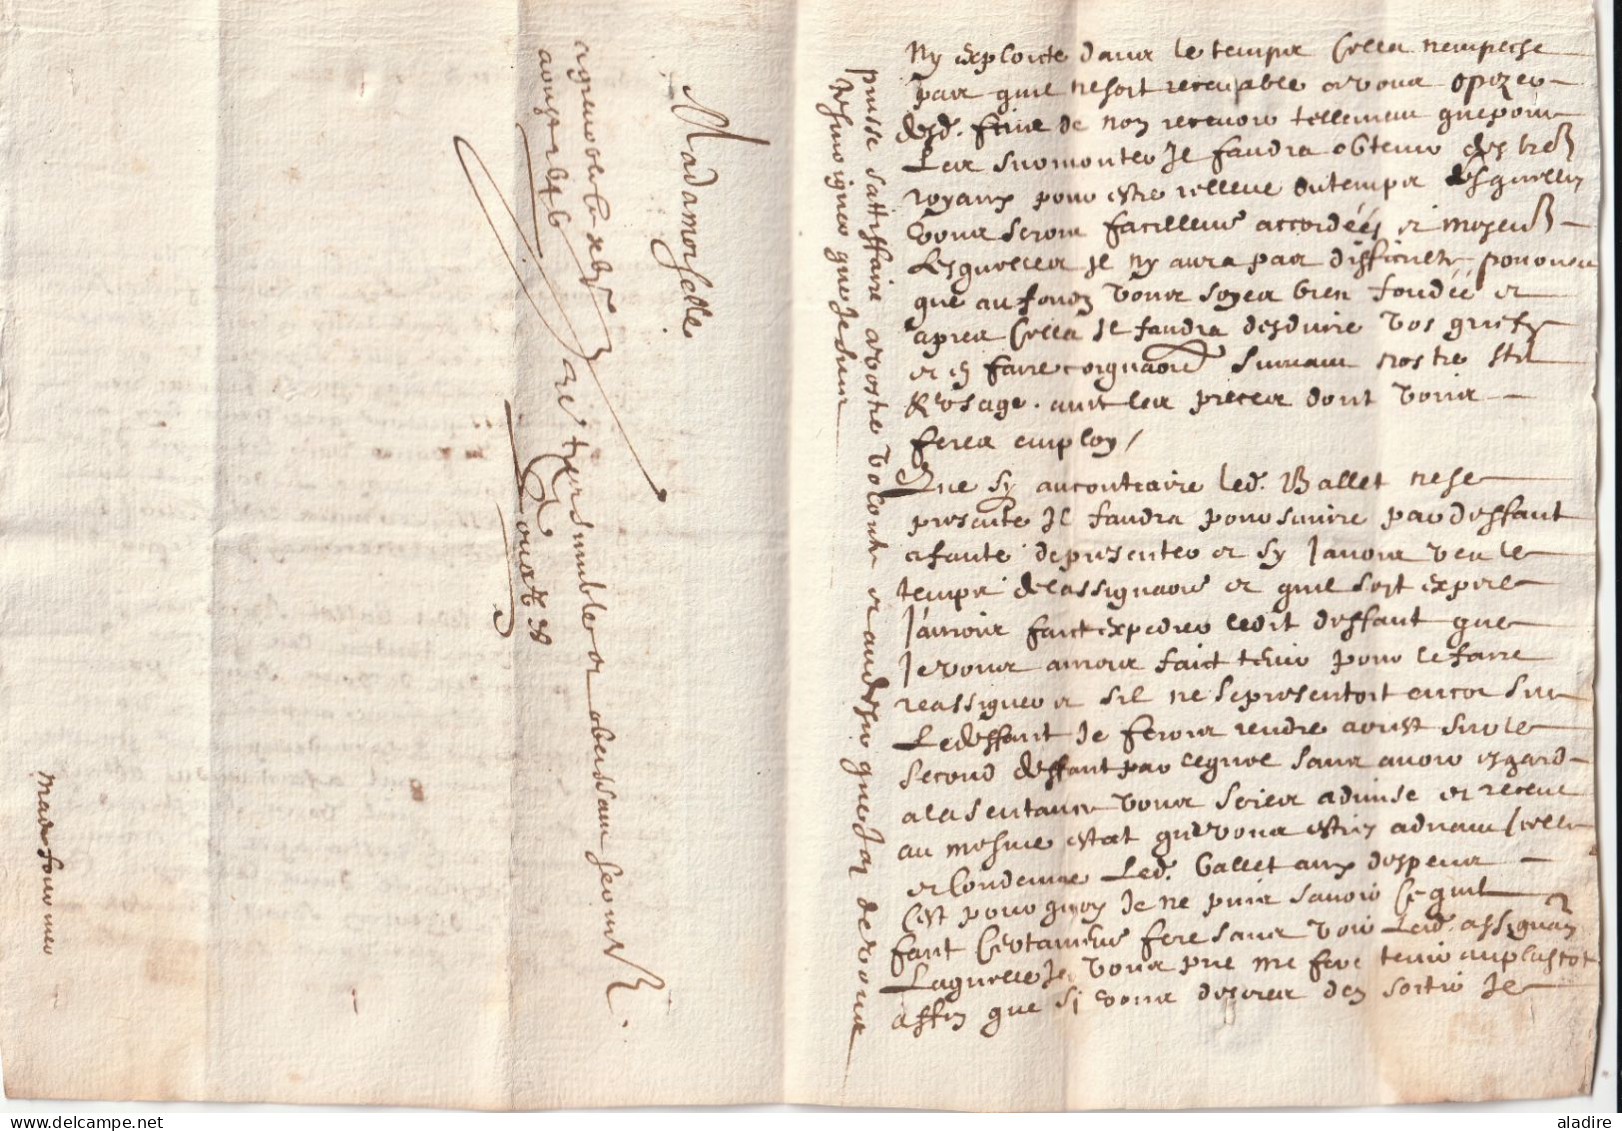 ny exploicte dans le temps Cella nempeche
pas quil ne soit recevable a vous opozer
desd. fins de non recevoir tellement que pour
Les surmonter Il faudra obtenir des lres
royaux pour estre relleve du temps desquelles
vous seront facillemt accordées et moyent
Lesquelles Il ny aura pas difficulte pourveu
que au fondz vous soyes bien fondée et
apres Cella Il faudra desduire vos griefz
et y faire coignaore suivant nostre stil
& usage. avec les pieces dont vous
feres employ /
Que sy au contraire led. Ballet ne se
presente Il faudra poursuivre par deffaut
a faute de presenter et sy Javois veu le
temps de lassignaon et quil soit expire
Jaurois faict expedier ledit deffaut que
Je vous aurois faict tenir pour le faire
reassigner et sil ne se presentoit encor sur
Le deffaut Je ferois rendre arrest sur le
second deffaut par lequel sans avoir esgard
a la sentance vous series admise et receue
au mesme estat que vous esties advant Icelle
et Condemne Led. Ballet aux despens
Cest pourquoy Je ne puis savoir Ce quil
faut Certainemt fere sans voir Lad. assignaon
Laquelle Je vous prie me fere tenir au plustot
affin que si vous desires den sortir Je
puisse sattisffaire a vostre volonte et au desir que Jay de vous
tesmoigner que Je suis
Madamoiselle
Vre tres humble et obeissant serviteur
a grenoble le xbr
aoust 1646
Made